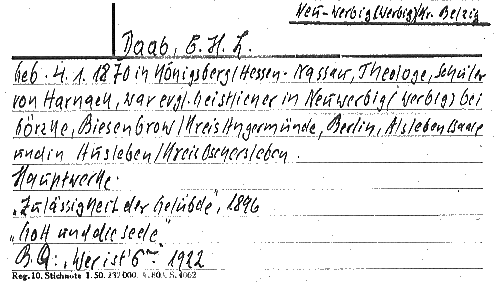 Neu-Werbig (Werbig) Kr. Belzig
Daab, E. H. L.
Geb. 4. 1. 1870 in Königsberg/Hessen-Nassau, Theologe, Schüler
von Harnack, war evgl. Geistlicher in Neuwerbig (Werbig) bei
Görzke, Biesenbrow/Kreis Angermünde, Berlin, Alsleben Saale
und in Ausleben/Kreis Oschersleben.
Hauptwerke:
„Zulässigkeit der Gelübde", 1896
„Gott und die Seele"
B. Q.: „Wer ist's" 1922
Reg. 10. Stichnote 1. 50. 232 000.